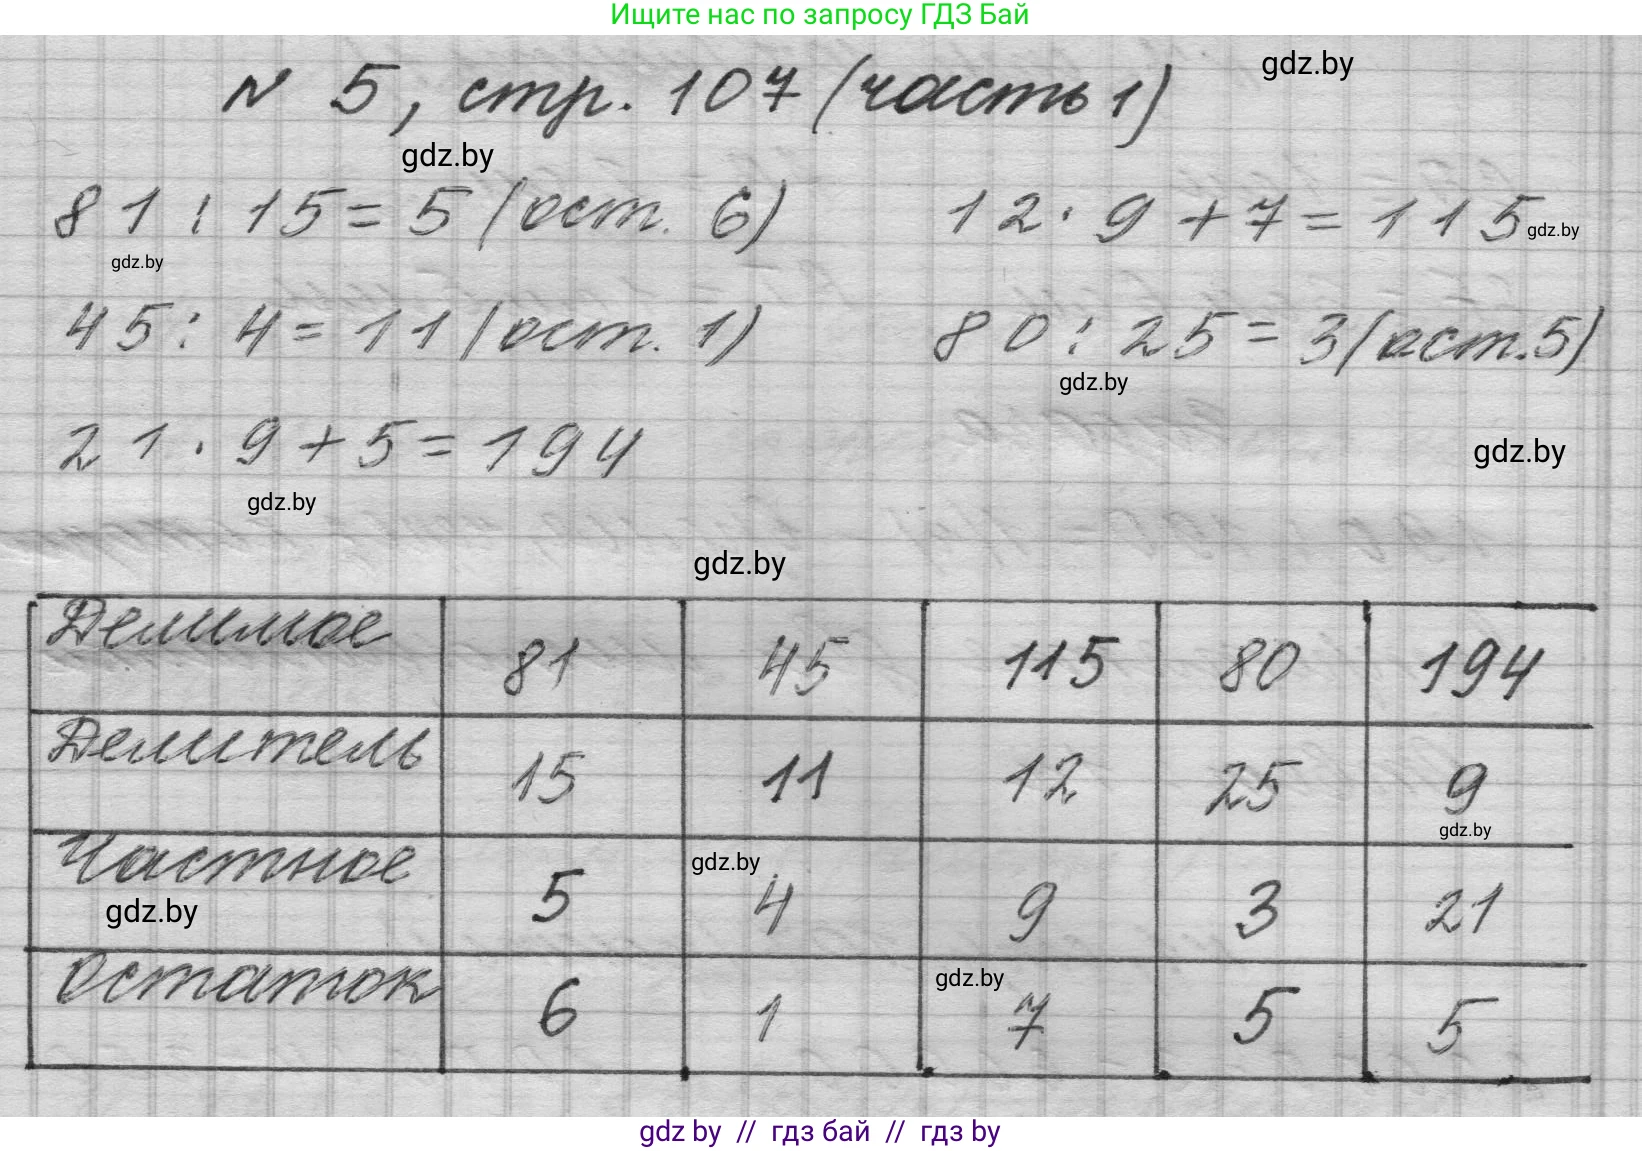 Ищите нас по запросу ГДЗ Бай
gdz.by
№ 5, стр. 107 (часть 1)
gdz.by
81 : 15 = 5 (ост. 6) 12 · 9 + 7 = 115
gdz.by
gdz.by
45 : 4 = 11 (ост. 1) 80 : 25 = 3 (ост. 5)
gdz.by
21 · 9 + 5 = 194
gdz.by
gdz.by
gdz.by
Делимое 81 45 115 80 194
Делитель 15 11 12 25 9
gdz.by
Частное 5 4 9 3 21
gdz.by
gdz.by
Остаток 6 1 7 5 5
gdz.by
gdz by // гдз бай // гдз by